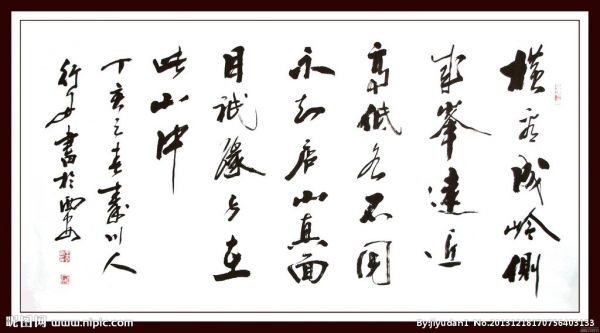 横看成岭侧
成峯遠近
高低各不同
不知庐山真面
目祇缘身在
此山中
丁亥之春秦川人
書於西安
昵图网 www.nipic.com
By:jiyudan1 No.20131218170756403133